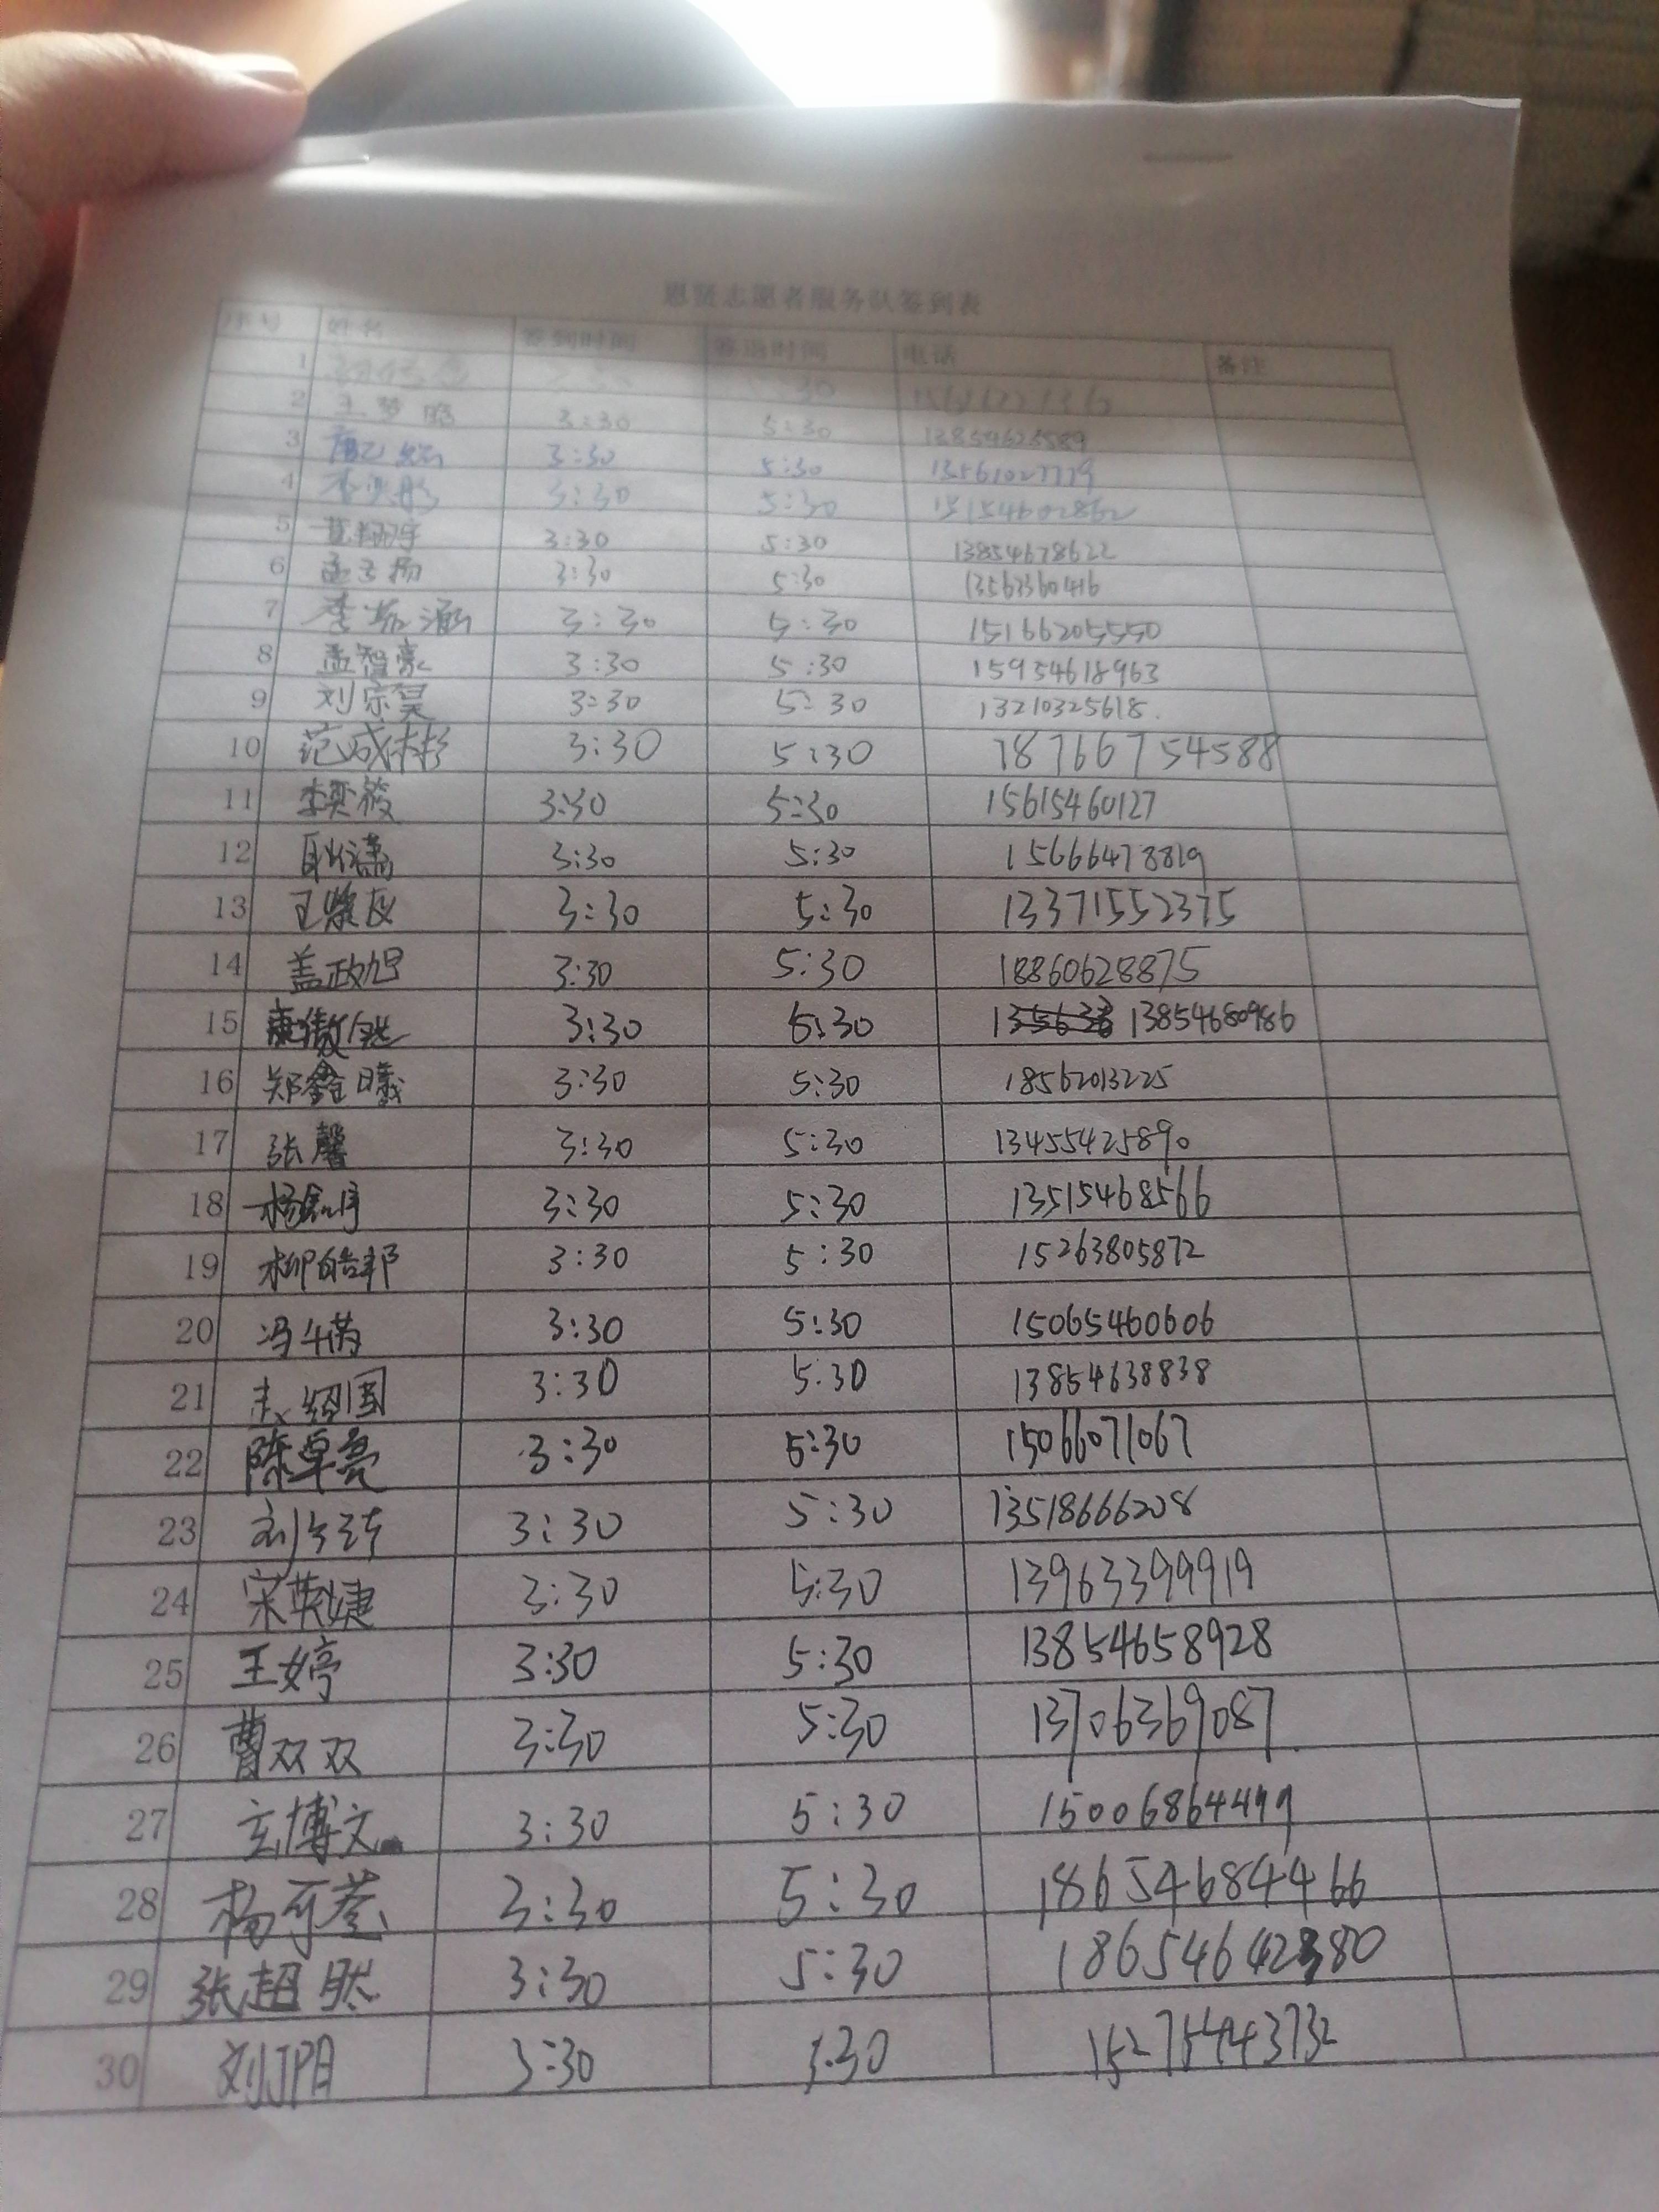 志愿者服务队签到表
序号 姓名 签到时间 签退时间 电话 备注
1 5:30
2 王梦晗 3:30 5:30 13854623589
3 3:30 5:30 13561027779
4 3:30 5:30 13154602862
5 3:30 5:30 13854678622
6 孟子扬 3:30 5:30 13562360416
7 李茹涵 3:30 5:30 15166205550
8 孟智豪 3:30 5:30 15954618963
9 刘宗昊 3:30 5:30 13210325618.
10 范成林杉 3:30 5:30 18766754588
11 李奕筱 3:30 5:30 15615460127
12 3:30 5:30 15666478819
13 3:30 5:30 13371552375
14 盖政旭 3:30 5:30 18860628875
15 3:30 5:30 13854680986
16 郑鑫曦 3:30 5:30 18562013225
17 张馨 3:30 5:30 13455425890
18 3:30 5:30 13515468566
19 柳皓邦 3:30 5:30 15263805872
20 3:30 5:30 15065460606
21 3:30 5:30 13854638838
22 陈卓亮 3:30 5:30 15066071067
23 3:30 5:30 13518666208
24 宋英婕 3:30 5:30 13963399919
25 王婷 3:30 5:30 13854658928
26 曹双双 3:30 5:30 13706369087
27 玄博文 3:30 5:30 15006864499
28 3:30 5:30 18654684466
29 张超然 3:30 5:30
30 3:30 15275443732